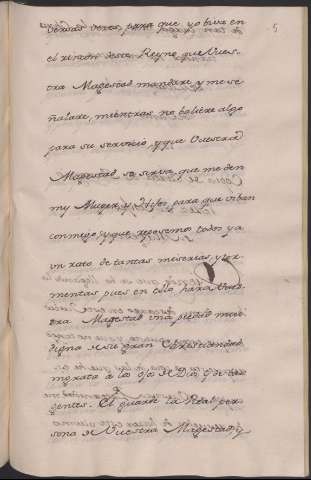 5
versas veces, para que yo viva en
el rincon deste Reyno que Vues-
tra Magestad mandare, y me se
ñalare, mientras no valiere algo
para su servicio, y que Vuestra
Magestad se sirva que me den
my Muger, y Hijos para que vivan
conmigo, y que reposemos todos ya
un rato de tantas miserias, y tor-
mentas, pues en esto hara Vues-
tra Magestad una piedad muy
digna de su gran Christiandad
muy grata a los ojos de Dios, y de las
gentes. El guarde la Real per-
sona de Vuestra Magestad, y